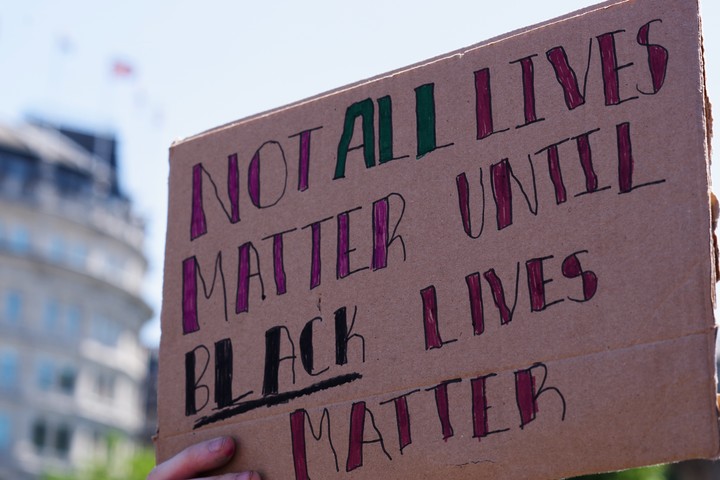 NOT ALL LIVES
MATTER UNTIL
BLACK LIVES
MATTER